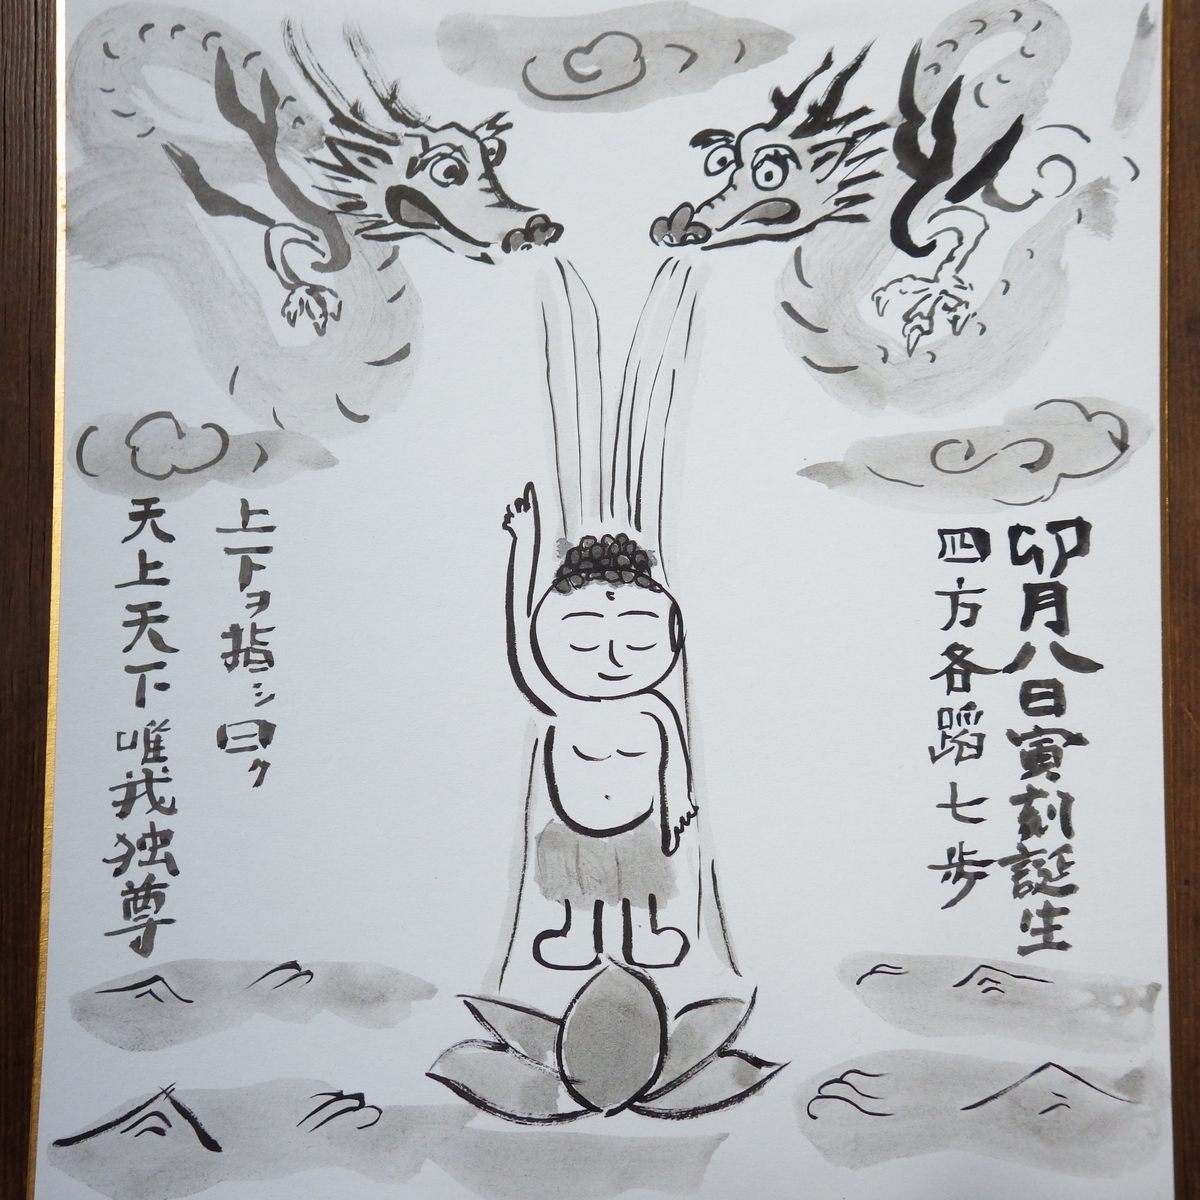 卯月八日寅刻誕生
四方各蹈七歩
上下ヲ指シ曰ク
天上天下唯我独尊